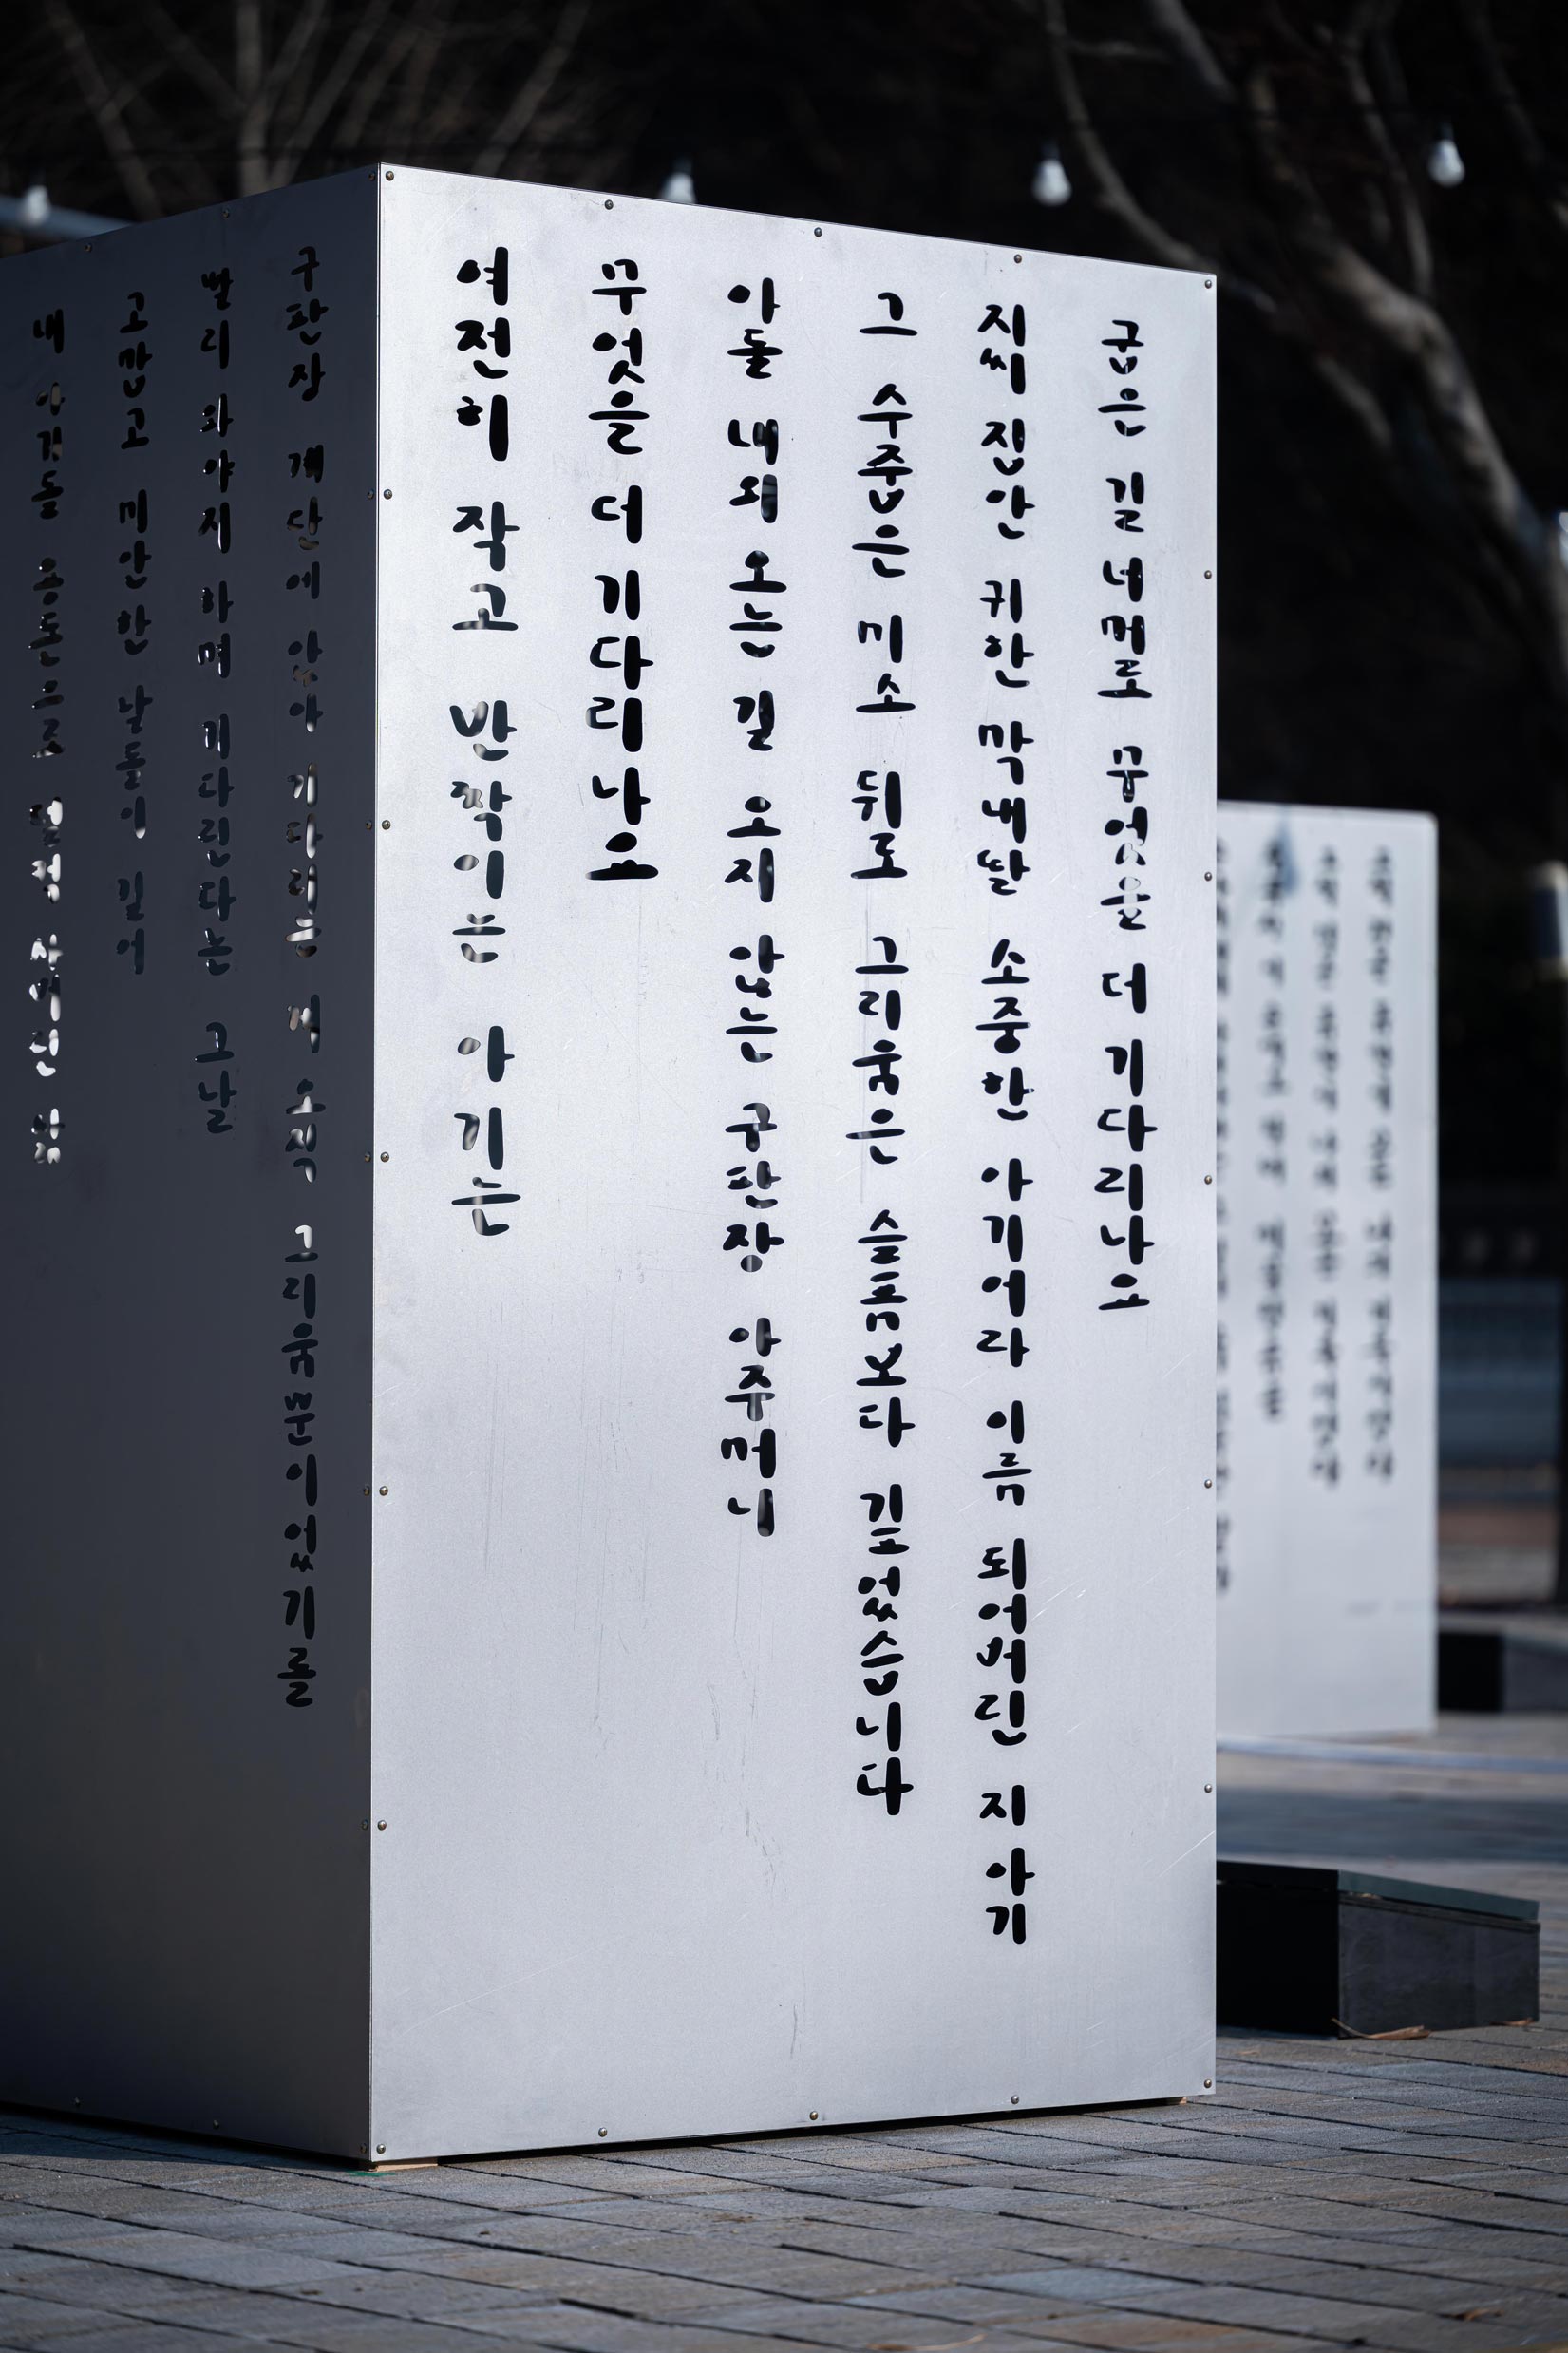 굽은 길 너머로 무엇을 더 기다리나요
지씨 집안 귀한 막내딸 소중한 아기어라 이름 되어버린 지 아기
그 수줍은 미소 뒤로 그리움은 슬픔보다 깊었습니다
아들 내외 오는 길 오지 않는 구판장 아주머니
무엇을 더 기다리나요
여전히 작고 반짝이는 아기는
구판장 계단에 앉아 기다리는 게 오직 그리움뿐이었기를
빨리 와야지 하며 기다린다는 그날
고맙고 미안한 날들이 길어
내 아기들 용돈으로